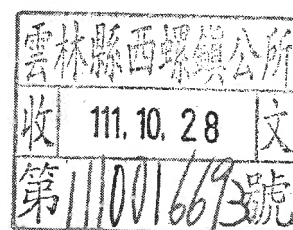 雲林縣西螺鎮公所
收 111.10.28 文
第1110016693號